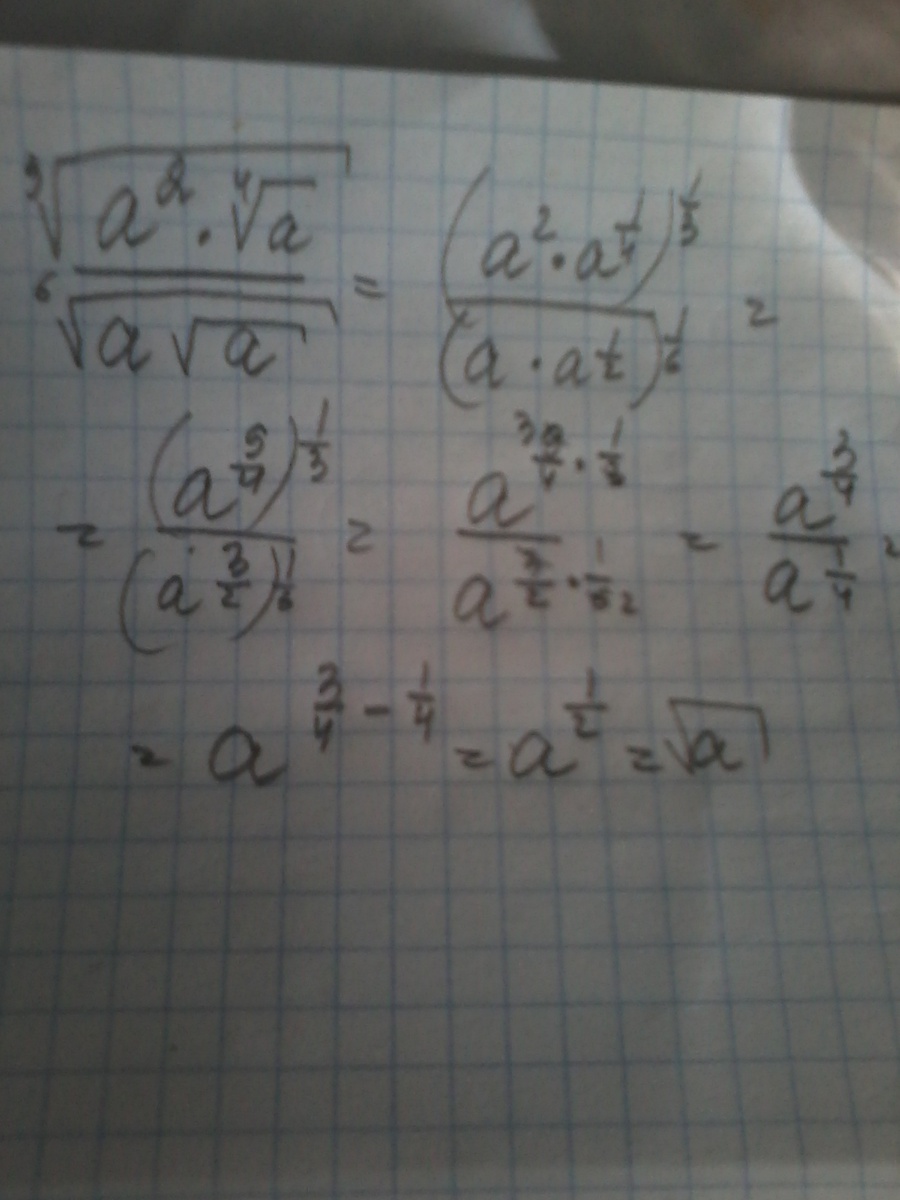 \frac{\sqrt[3]{a^2 \cdot \sqrt[4]{a}}}{\sqrt[6]{a\sqrt{a}}} = \frac{(a^2 \cdot a^{\frac{1}{4}})^{\frac{1}{3}}}{(a \cdot a^{\frac{1}{2}})^{\frac{1}{6}}} =
= \frac{(a^{\frac{9}{4}})^{\frac{1}{3}}}{(a^{\frac{3}{2}})^{\frac{1}{6}}} = \frac{a^{\frac{9}{4} \cdot \frac{1}{3}}}{a^{\frac{3}{2} \cdot \frac{1}{6}}} = \frac{a^{\frac{3}{4}}}{a^{\frac{1}{4}}} =
= a^{\frac{3}{4} - \frac{1}{4}} = a^{\frac{1}{2}} = \sqrt{a}